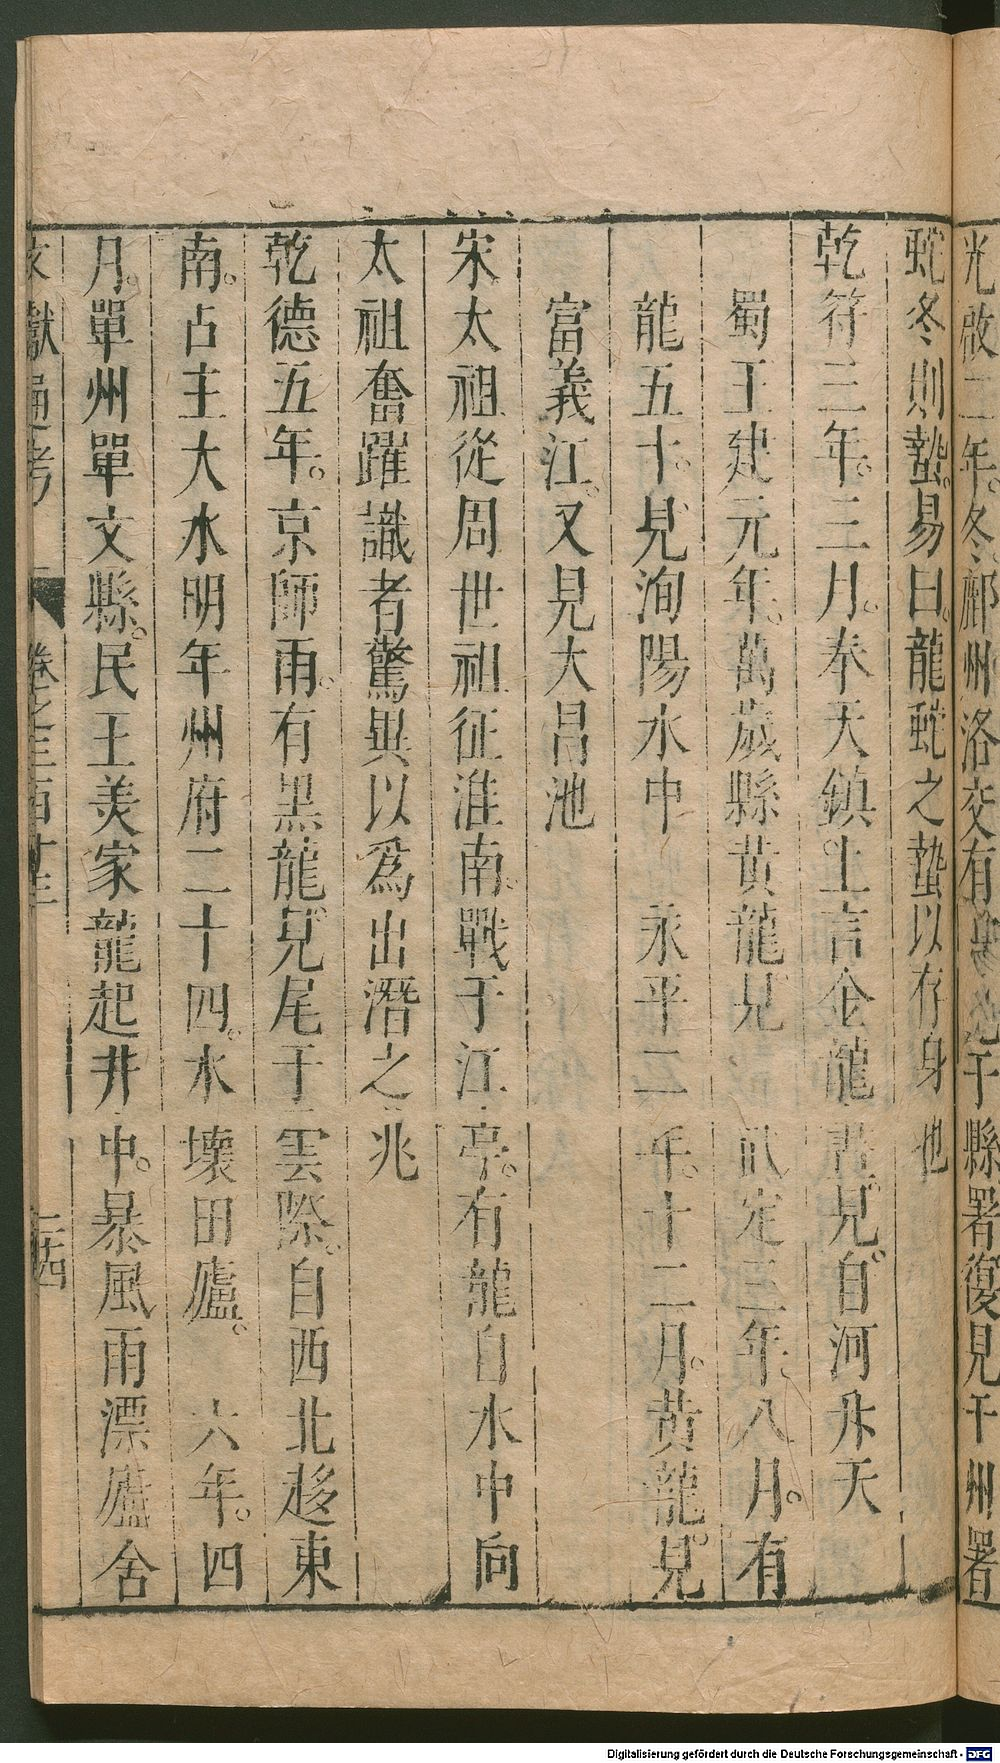 光啟二年。冬鄜州洛交有于縣署復見于州署
蛇冬則蟄。易曰。龍蛇之蟄以存身也
乾符三年。三月。奉天鎮上言金龍晝見。自河升天
蜀王建元年。萬歲縣黃龍見 武定三年。八月。有
龍五十。見洵陽水中 永平二年。十二月。黃龍見
富義江。又見大昌池
宋太祖從周世祖征淮南。戰于江亭。有龍自水中向
太祖奮躍識者驚異以為出潛之兆
乾德五年。京師雨。有黑龍見尾于雲際。自西北趍東
南。占主大水明年州府二十四。水壞田廬。 六年。四
月。單州單文縣。民王美家龍起井中。暴風雨漂廬舍
文獻通考 卷之三百十三 二十四
Digitalisierung gefördert durch die Deutsche Forschungsgemeinschaft - DFG